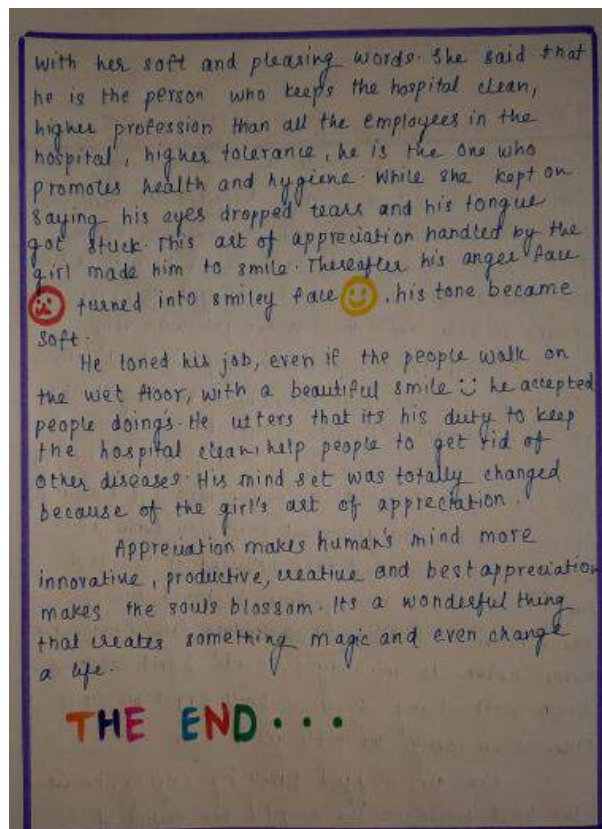 with her soft and pleasing words. She said that
he is the person who keeps the hospital clean,
higher profession than all the employees in the
hospital, higher tolerance, he is the one who
promotes health and hygiene. While she kept on
saying his eyes dropped tears and his tongue
got stuck. This art of appreciation handled by the
girl made him to smile. Thereafter his anger face
turned into smiley face , his tone became
soft.
He toned his job, even if the people walk on
the wet floor, with a beautiful smile he accepted
people doing's. He utters that its his duty to keep
the hospital clean, help people to get rid of
other diseases. His mind set was totally changed
because of the girl's art of appreciation.
Appreciation makes human's mind more
innovative, productive, creative and best appreciation
makes the souls blossom. Its a wonderful thing
that creates something magic and even change
a life.
THE END...